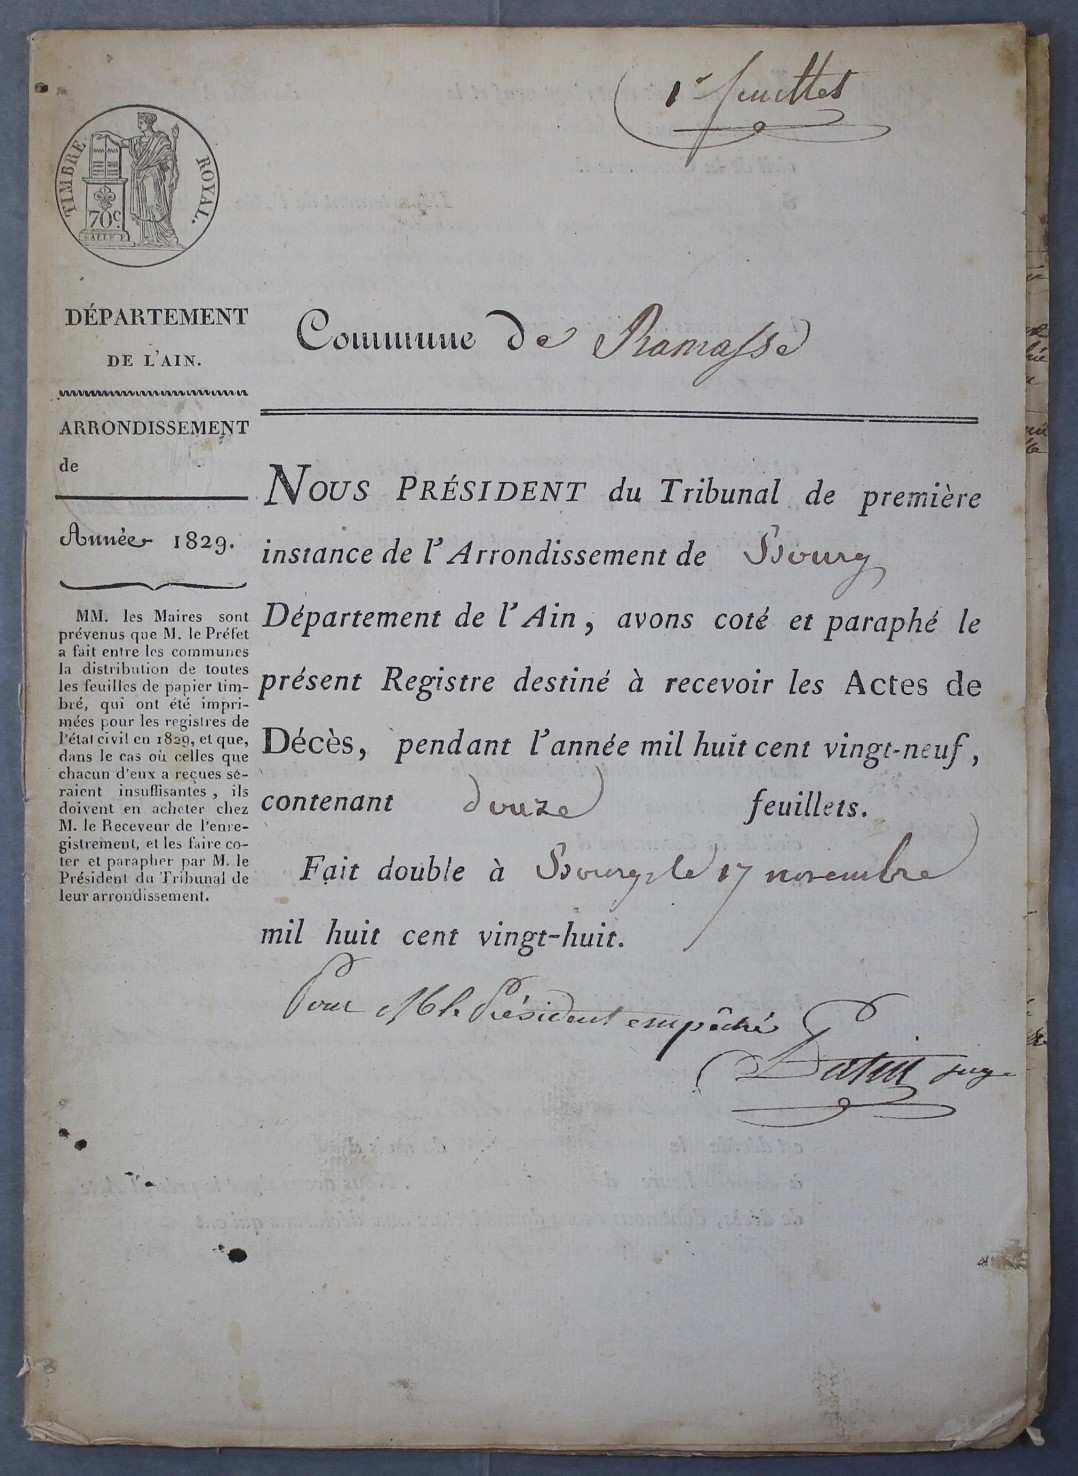 1er feuillet
TIMBRE ROYAL.
70c.
DÉPARTEMENT
DE L'AIN.
Commune de Ramasse
ARRONDISSEMENT
de
Année 1829.
MM. les Maires sont
prévenus que M. le Préfet
a fait entre les communes
la distribution de toutes
les feuilles de papier tim-
bré, qui ont été impri-
mées pour les registres de
l'état civil en 1829, et que,
dans le cas où celles que
chacun d'eux a reçues se-
raient insuffisantes, ils
doivent en acheter chez
M. le Receveur de l'enre-
gistrement, et les faire co-
ter et parapher par M. le
Président du Tribunal de
leur arrondissement.
NOUS PRÉSIDENT du Tribunal de première
instance de l'Arrondissement de Bourg
Département de l'Ain, avons coté et paraphé le
présent Registre destiné à recevoir les Actes de
Décès, pendant l'année mil huit cent vingt-neuf,
contenant douze feuillets.
Fait double à Bourg, le 17 novembre
mil huit cent vingt-huit.
Pour M. le Président empêché
juge